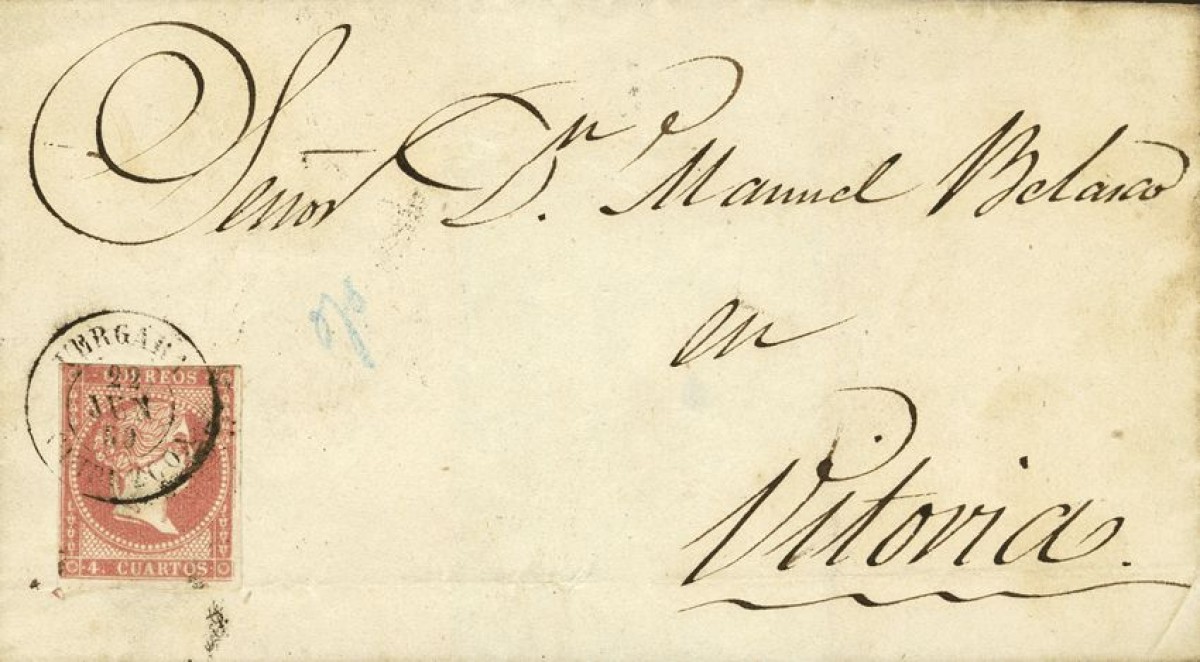 Señor D.n Manuel Belasco
en
Vitoria.
VERGARA
22
JUN
59
GUIPUZCOA
CORREOS
4. CUARTOS